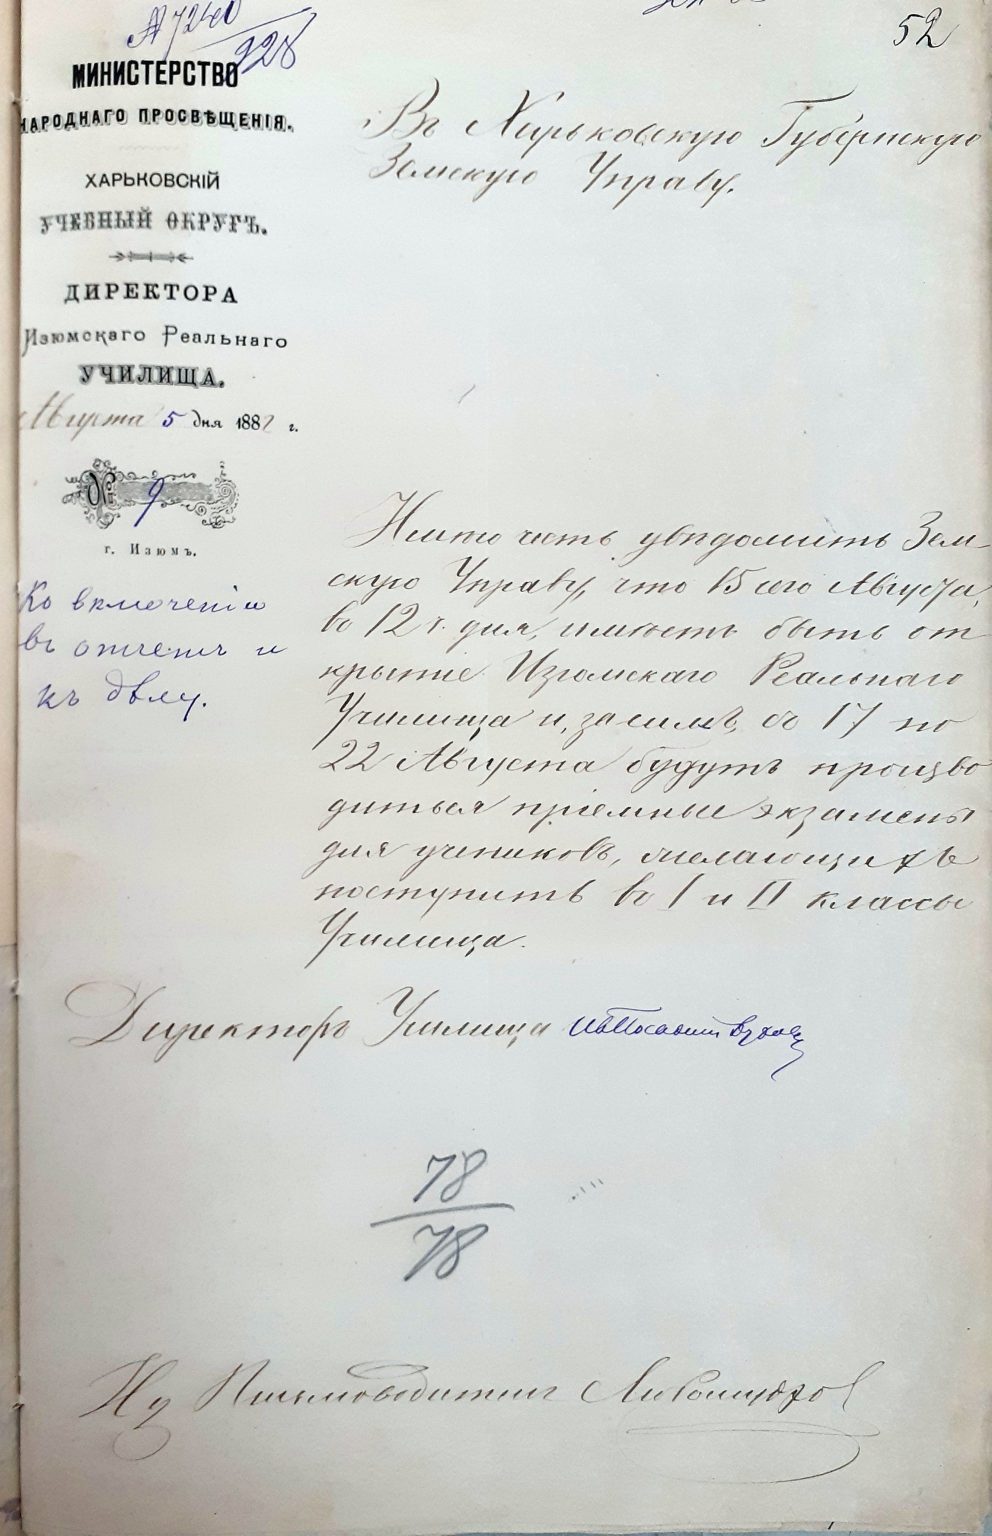 № 7240
928
52
МИНИСТЕРСТВО
НАРОДНАГО ПРОСВѢЩЕНІЯ.
ХАРЬКОВСКІЙ
УЧЕБНЫЙ ОКРУГЪ.
ДИРЕКТОРА
Изюмскаго Реальнаго
УЧИЛИЩА.
Августа 5 дня 1882 г.
№ 9
г. Изюмъ.
Ко включенію
въ отчетъ и
къ дѣлу.
Въ Харьковскую Губернскую
Земскую Управу.
Имѣю честь увѣдомить Зем-
скую Управу, что 15 сего Августа,
въ 12 ч. дня, имѣетъ быть от
крытіе Изюмскаго Реальнаго
Училища и, засимъ, съ 17 по
22 Августа будутъ произво
диться пріемные экзамены
для учениковъ, желающихъ
поступить въ I и II классы
Училища.
Директоръ Училища
78
78
Письмоводителя